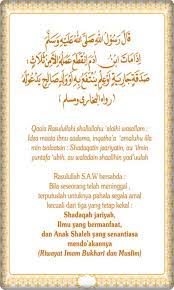 قَالَ رَسُوْلُ اللهِ صَلَّى اللهُ عَلَيْهِ وَسَلَّمَ
إِذَا مَاتَ ابْنُ آدَمَ انْقَطَعَ عَمَلُهُ إِلَّا مِنْ ثَلَاثٍ :
صَدَقَةٍ جَارِيَةٍ أَوْ عِلْمٍ يُنْتَفَعُ بِهِ أَوْ وَلَدٍ صَالِحٍ يَدْعُوْ لَهُ
( رواه البخارى ومسلم )
Qaula Rasulullahi shallallahu 'alaihi wasallam :
Idea maata ibnu aadama, inqatha'a 'amaluhu illa
min balaatsin : Shadaqatin jaariyatin, au 'ilmin
yuntafa 'ubih, au waladin shaalihin yad'uulah"
Rasulullah S.A.W bersabda :
Bila seseorang telah meninggal ,
terputuslah untuknya pahala segala amal
kecuali dari tiga yang tetap kekal :
Shadaqah jariyah,
Ilmu yang bermanfaat,
dan Anak Shaleh yang senantiasa
mendo'akannya
(Riwayat Imam Bukhori dan Muslim)